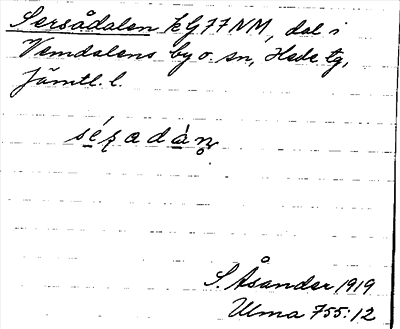 Sersådalen EG77NM, dal i
Vemdalens by o. sn, Hede tg,
Jämtl. l.
S. Åsander 1919
Ulma 755:12